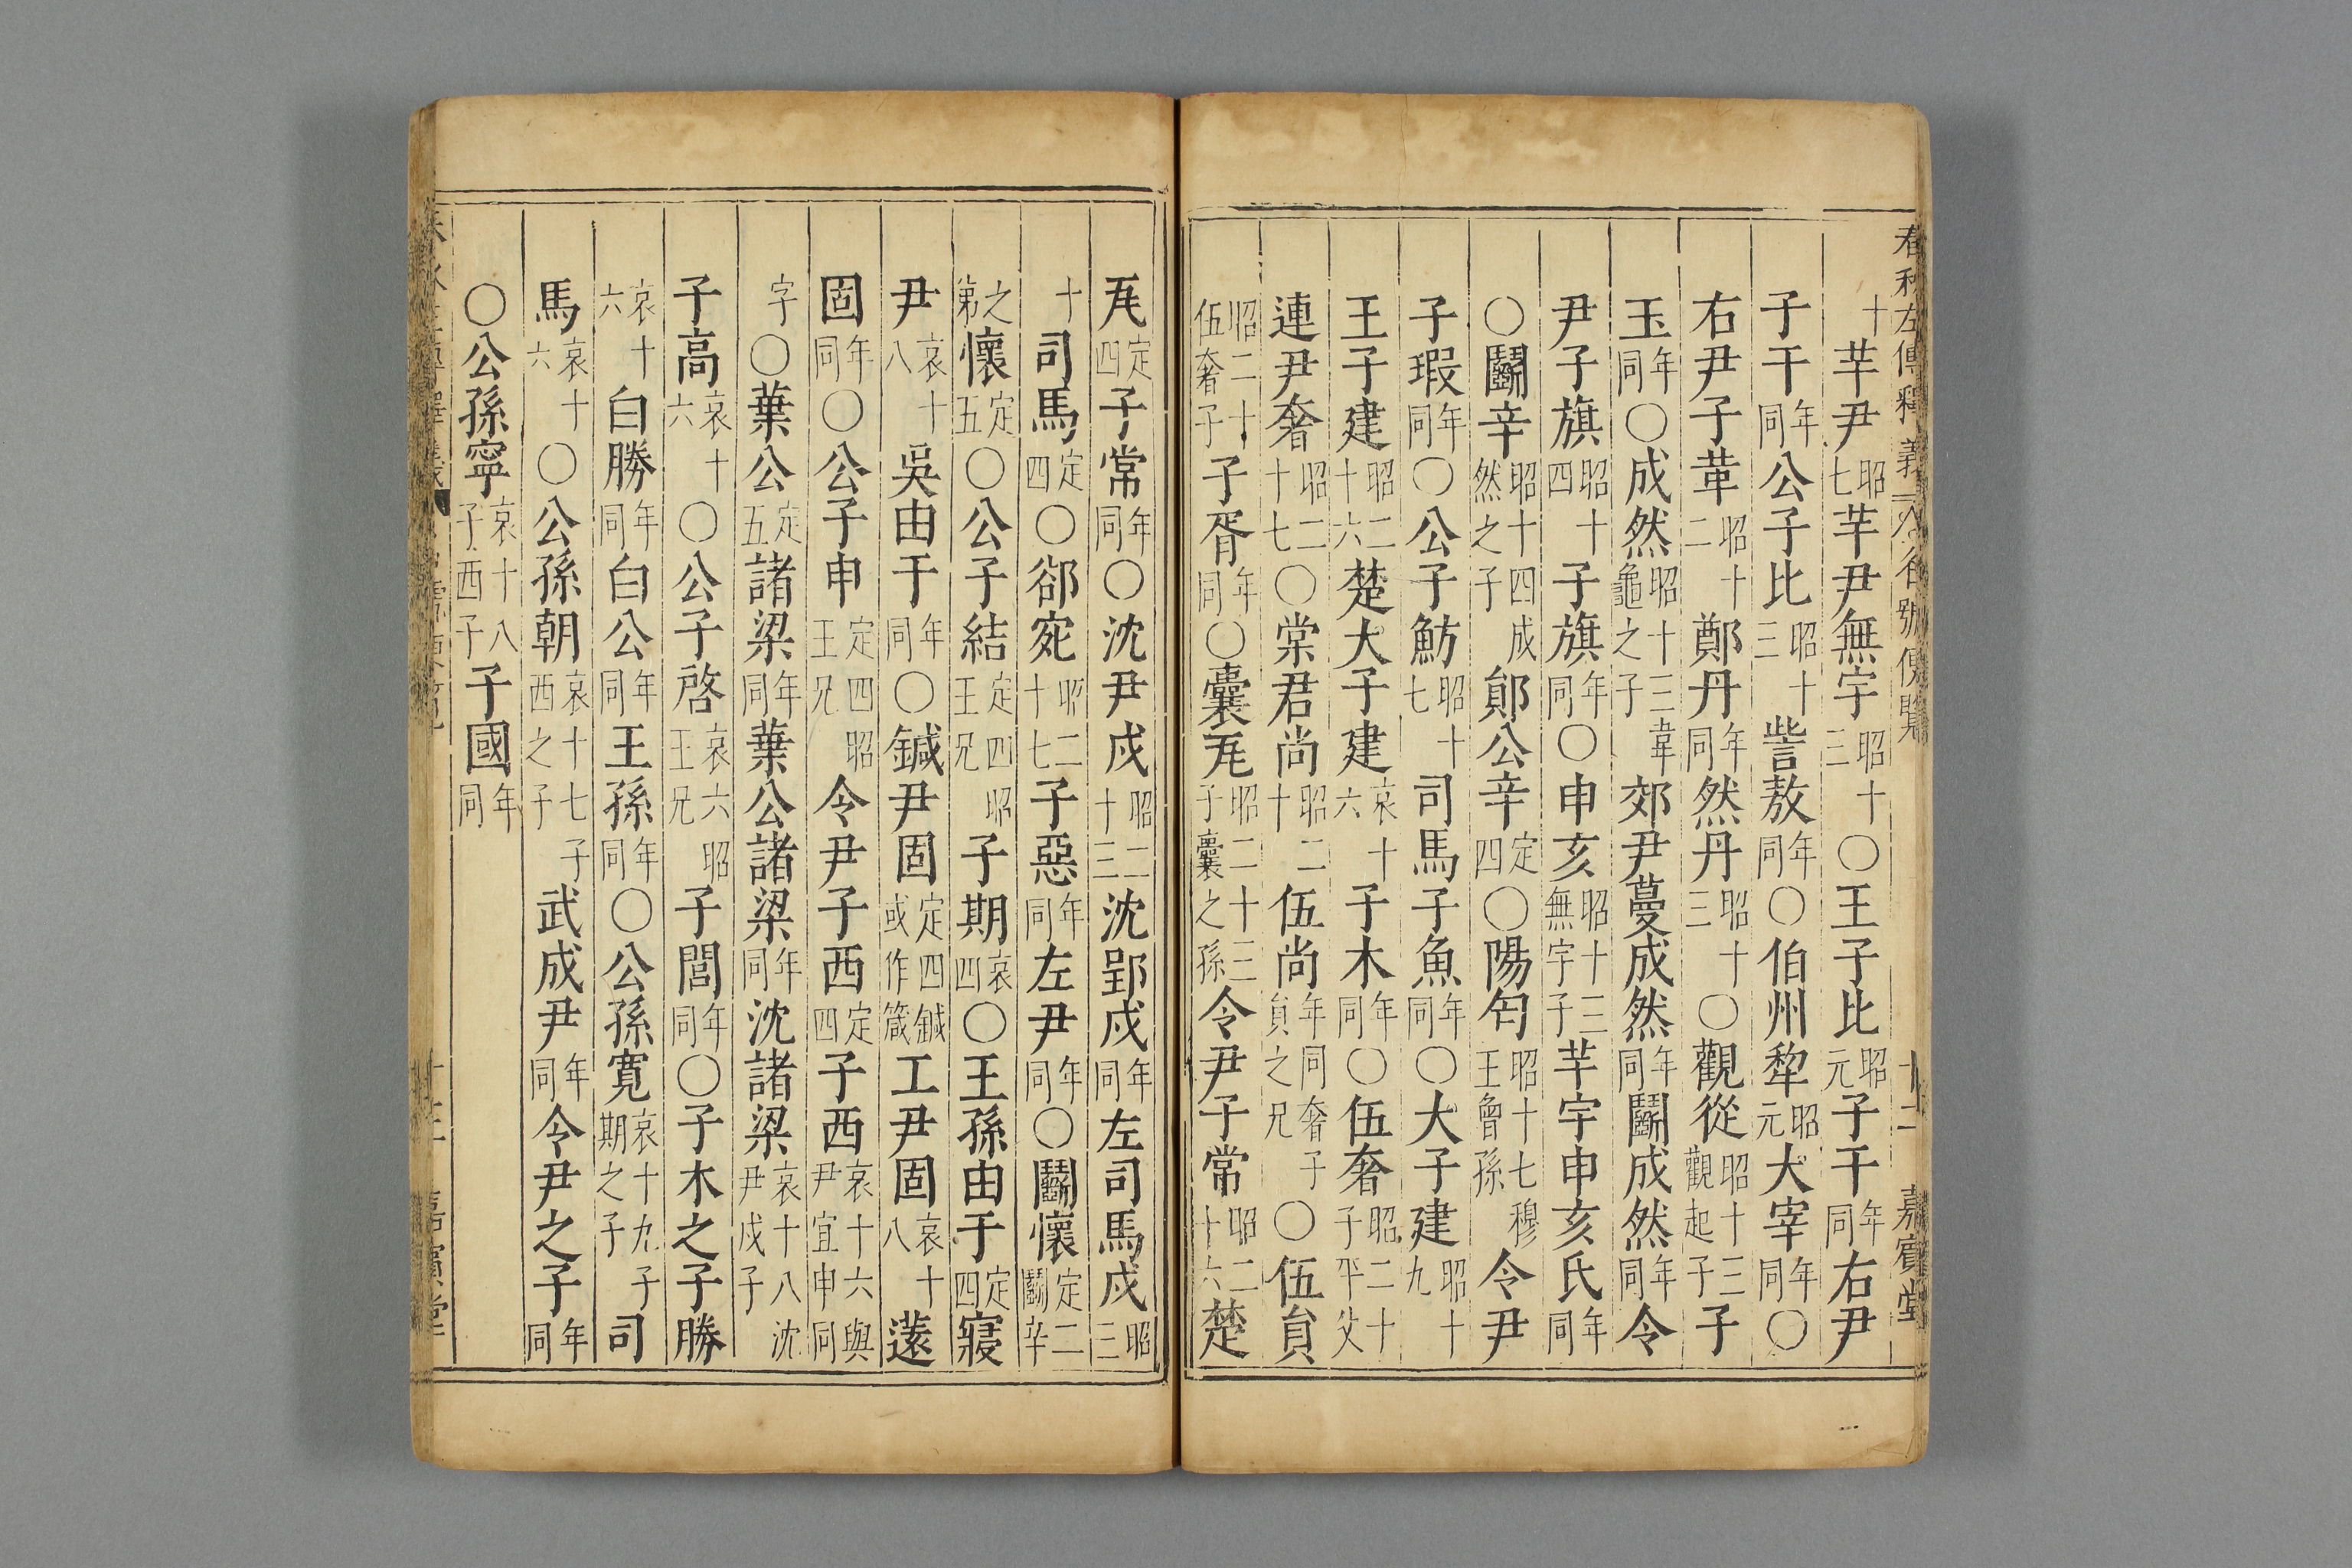 春秋左傳釋義 名號便覽 十二 嘉賓堂
十芋尹昭七芋尹無宇昭十三〇王子比昭元子干同年右尹
子干同年公子比昭十三訾敖同年〇伯州犂昭元大宰同年〇
右尹子革昭十二鄭丹同年然丹昭十三〇觀從昭十三觀起子子
玉同年〇成然昭十三韋龜之子郊尹蔓成然同年鬬成然同年令
尹子旗昭十四子旗同年〇申亥昭十三無宇子芋宇申亥氏同年
〇鬬辛昭十四成然之子鄖公辛定四〇陽匄昭十七穆王曾孫令尹
子瑕同年〇公子魴昭十七司馬子魚同年〇大子建昭十九
王子建昭二十六楚大子建哀十六子木同年〇伍奢昭二十子平父
連尹奢昭二十七〇棠君尚昭二十伍尚年同奢子員之兄〇伍員
昭二十伍奢子子胥同年〇囊瓦昭二十三子囊之孫令尹子常昭二十六楚
瓦定四子常同年〇沈尹戌昭二十三沈郢戌同年左司馬戌昭三
十司馬定四〇郤宛昭二十七子惡同年左尹同年〇鬬懷定二鬬辛
之弟懷定五〇公子結定四昭王兄子期哀四〇王孫由于定四寢
尹哀十八吳由于同年〇鍼尹固定四鍼或作箴工尹固哀十八薳
固同年〇公子申定四昭王兄令尹子西定四子西哀十六與尹宜申同
字〇葉公定五諸梁同年葉公諸梁同年沈諸梁哀十八沈尹戌子
子高哀十六〇公子啓哀六昭王兄子閭同年〇子木之子勝
哀十六白勝同年白公同年王孫同年〇公孫寬哀十九子期之子司
馬哀十六〇公孫朝哀十七子西之子武成尹同年令尹之子同年
〇公孫寧哀十八子西子子國同年